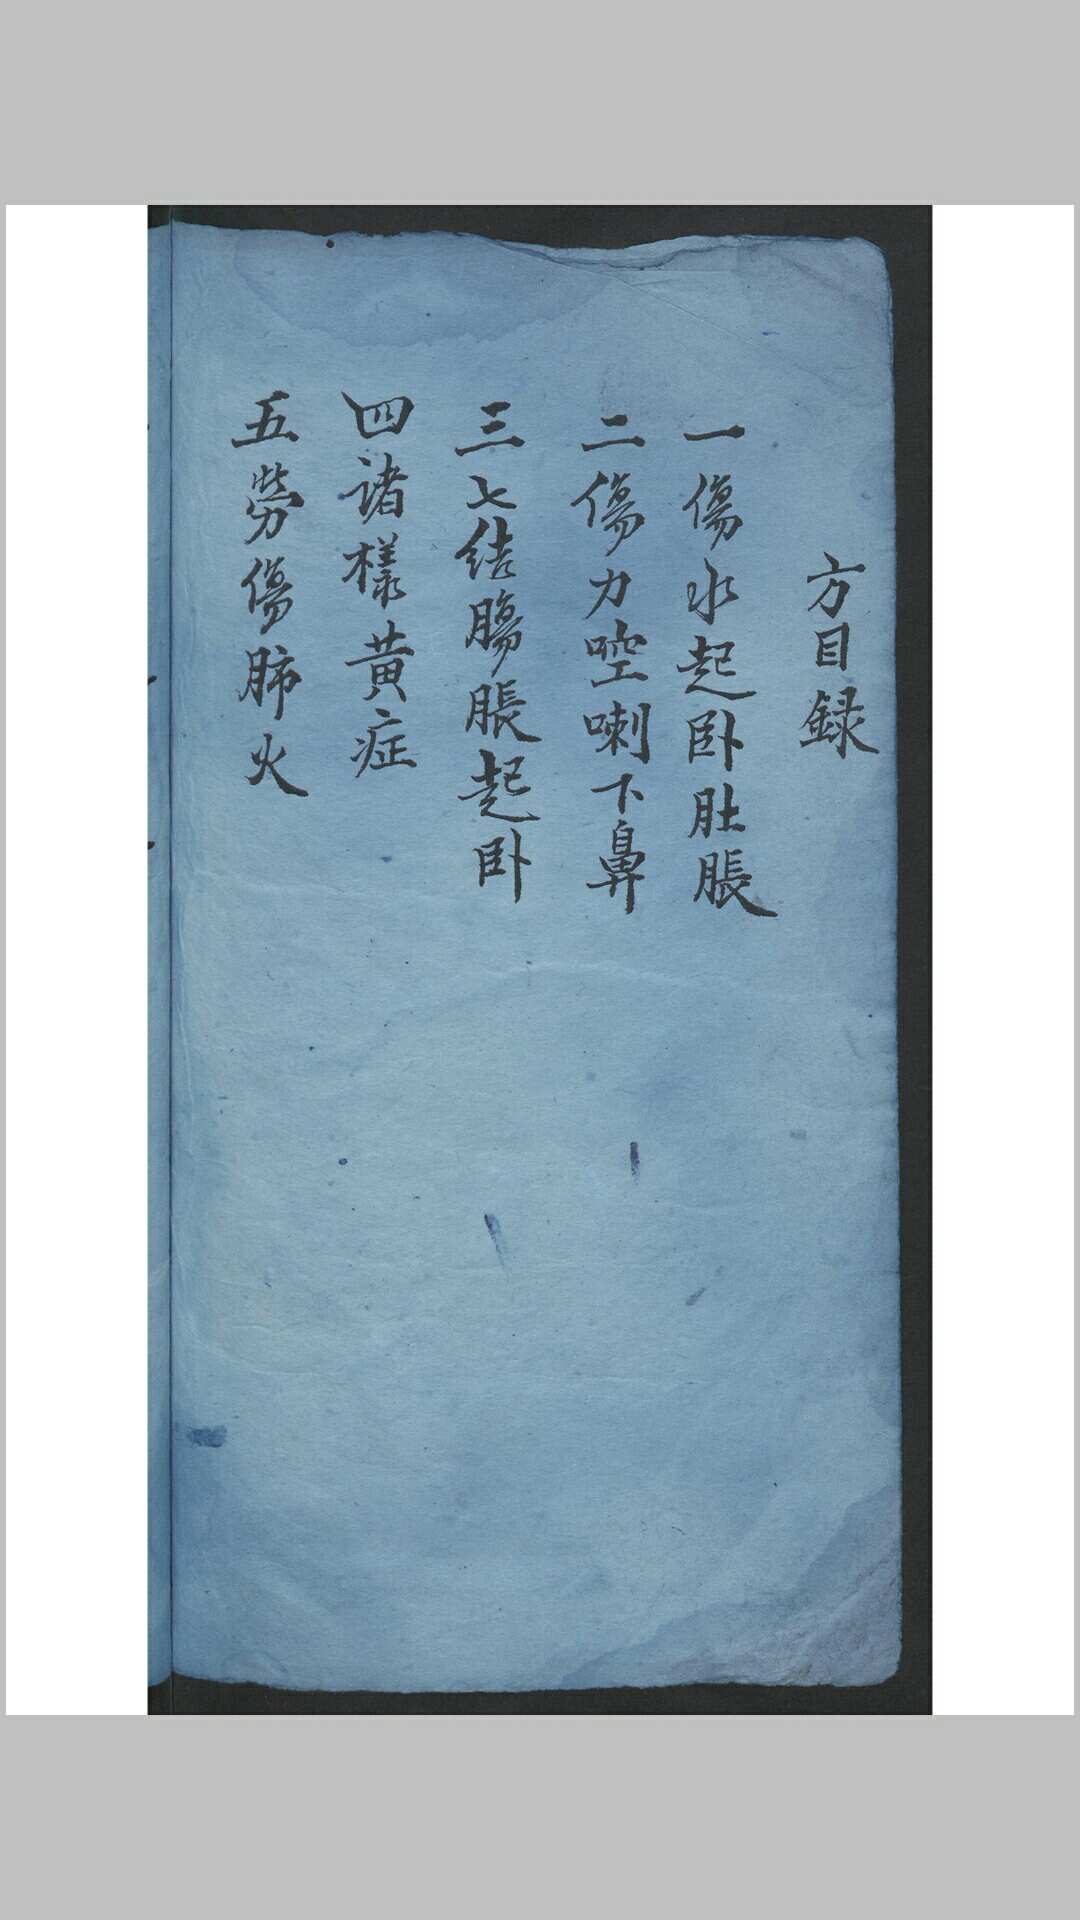 方目録
一傷水起卧肚脹
二傷力啌喇下鼻
三七结腸脹起卧
四諸樣黃症
五勞傷肺火